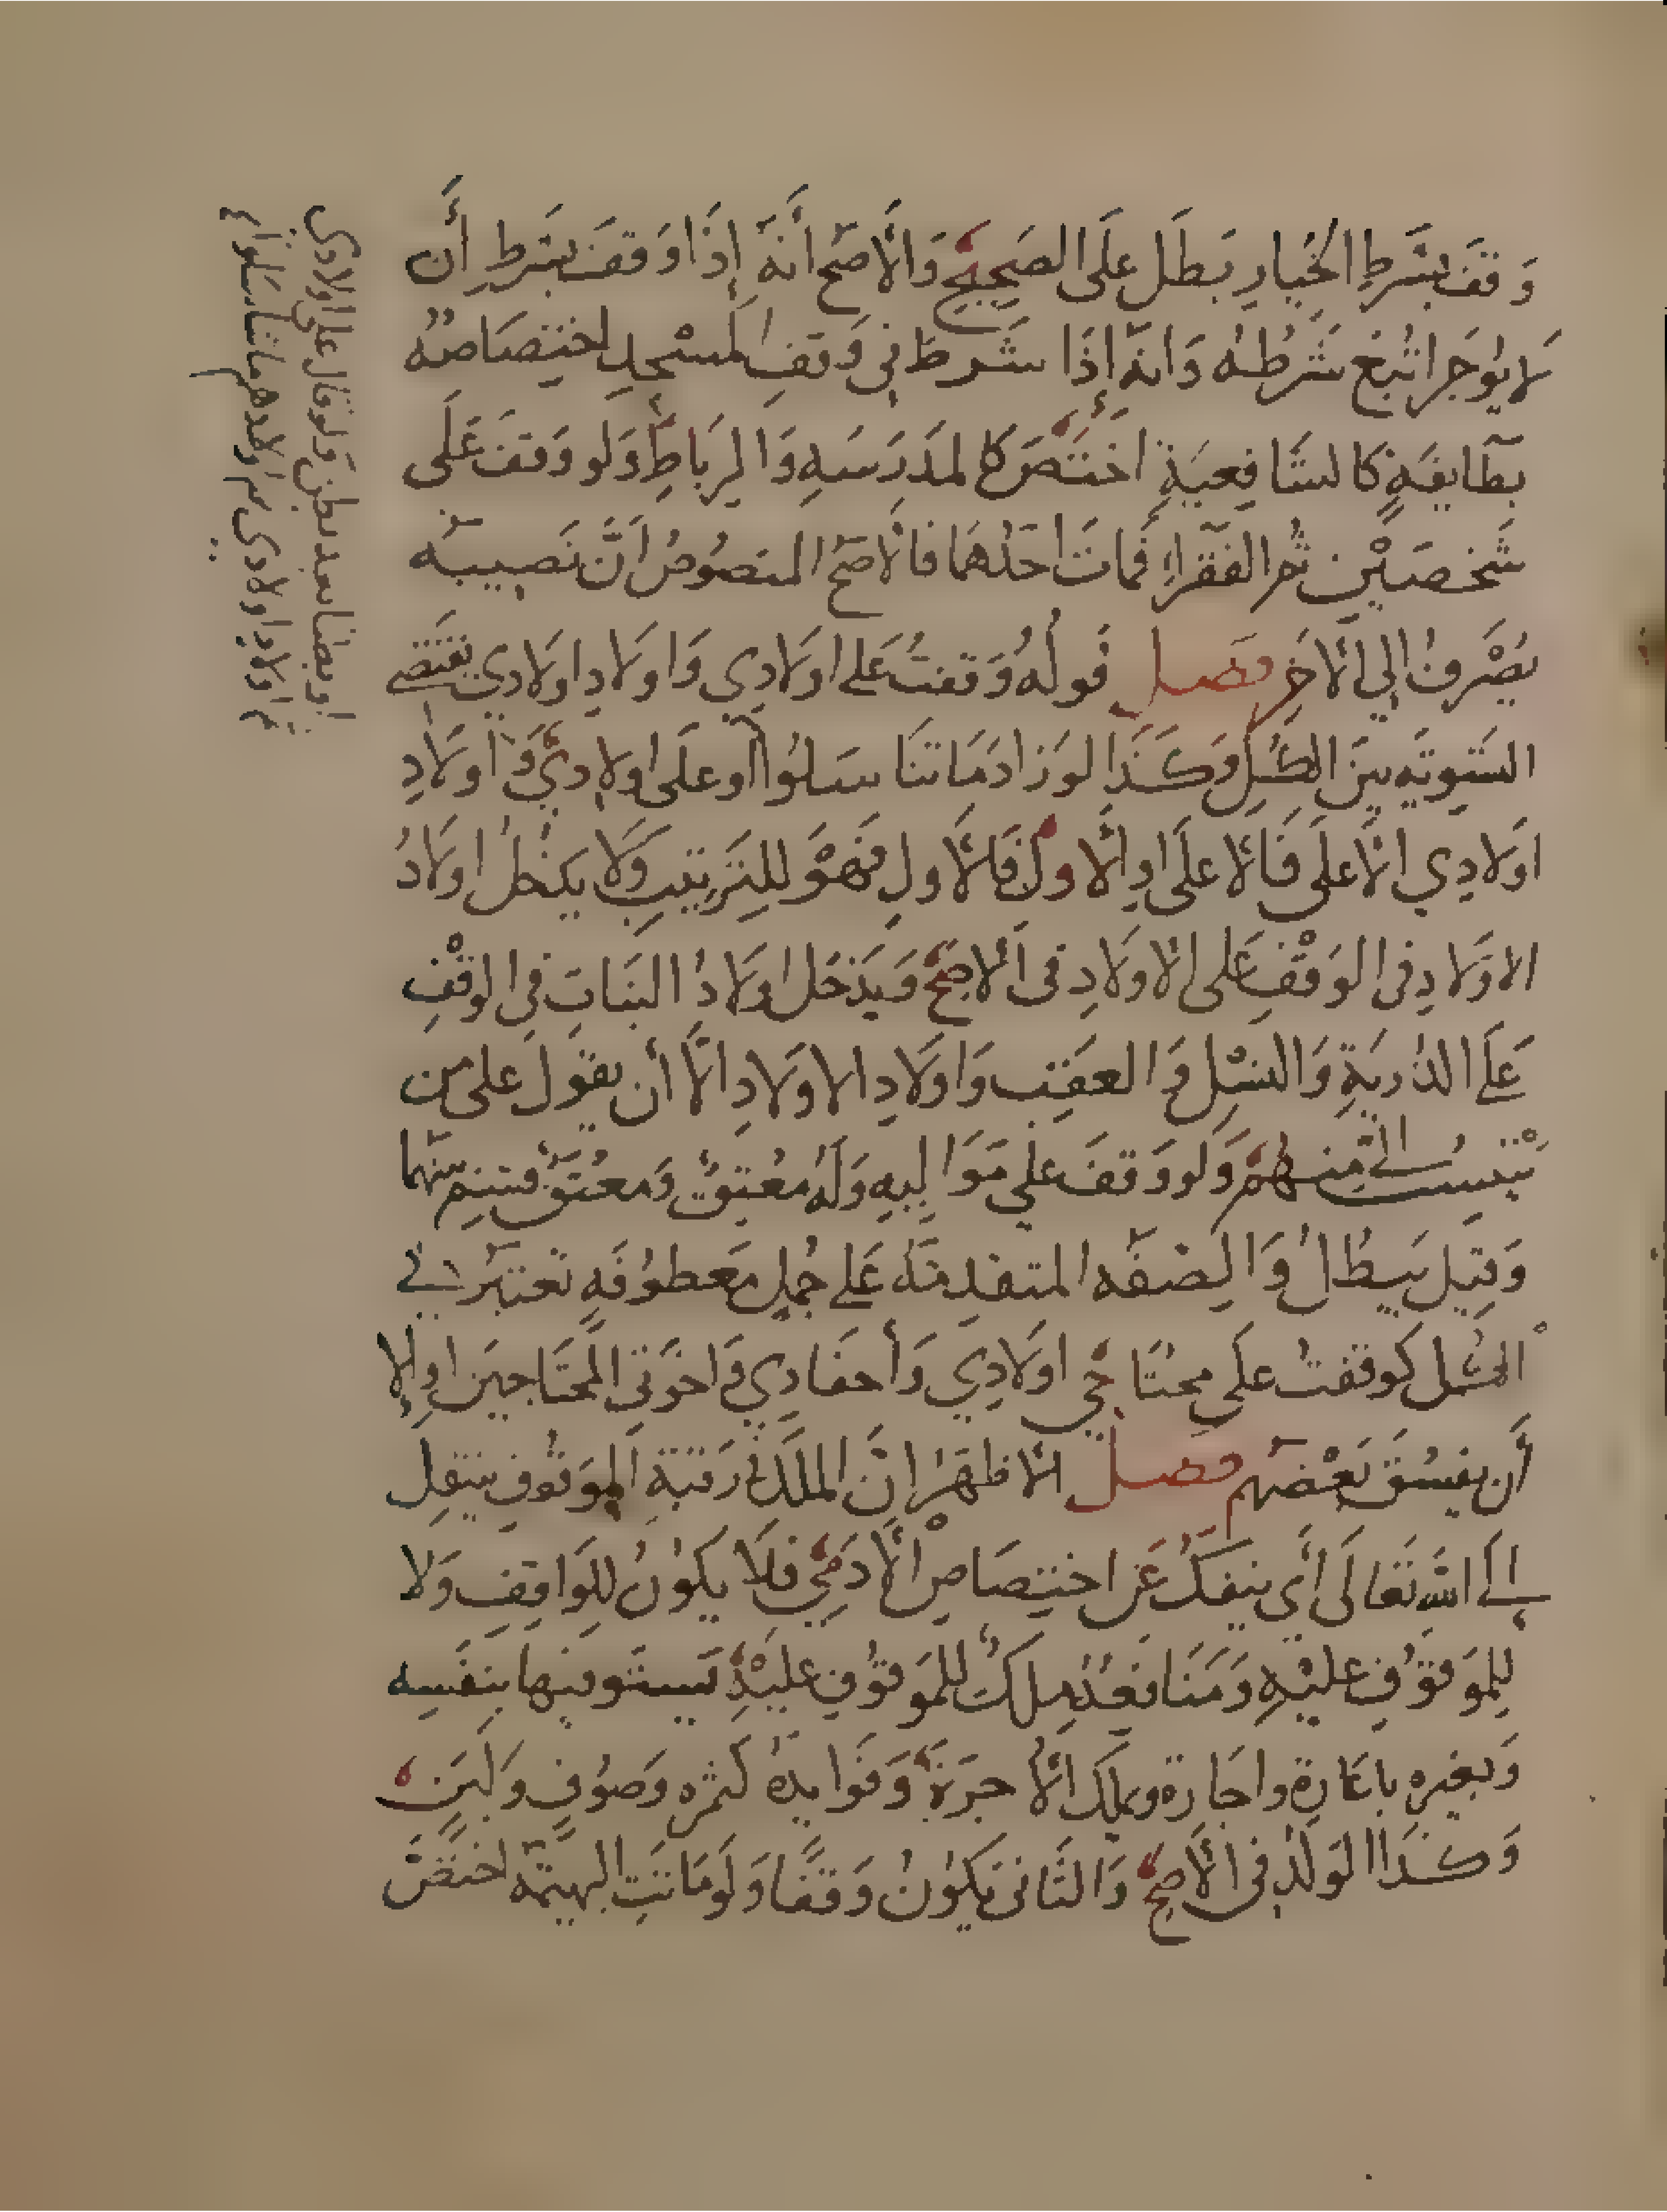 وَقَفَ بشَرطِ الخيارِ بَطَل علَى الصَحِيحِ وَالأصَح أنهُ إذَا وَقفَ بشَرطِ أن
لا يُوجَر اتبعَ شَرْطهُ وَانهُ إذَا شرطَ في وَقفِ المسْجدِ اختِصَاصهُ
بطَايفَةٍ كالشافِعيَةِ اختَصَّ كالمدرَسَهِ وَالرِبَاطِ وَلو وَقفَ عَلَى
شَخصَيْنِ ثم الفقراءِ فَماتَ احَدُهمَا فالأصَح المنصُوصُ انَّ نَصيبهُ
يُصْرفُ الى الآخَرِ فصل قَولُهُ وَقفتُ عَلى اولَادِي وَاولَادِ اولَادي يقتَضي
التسويَه بينَ الكُلِ وَكَذَا لو زادَ مَا تنَاسَلوُا او علَى اولادي وَاولَادِ
اولَادِي الأعلَى فَالأعلَى او الأولَ فَالأولِ فهوَ للترتيبِ وَلَا يدخُلُ اولَادُ
الاولَادِ في الوَقْفِ عَلى الاولَادِ في الأصَحِ وَيَدخل اولَادُ البَناتِ في الوقْفِ
عَلَى الذُريَةِ وَالنسْلِ وَالعقبِ وَاولَادِ الاولَادِ الّا أن يقوُلَ على من
يَنْتسبُ الىَّ مِنهُم وَلو وَقفَ على مَوَاليهِ وَلَهُ مُعْتِقٌ وَمعتَقٌ قسّم بينهما
وَقيل يبطُلُ وَالصفَه المتقدمَةُ عَلى جُملٍ مَعطوُفَهٍ تعتبَرُ في
الكُل كوقفتُ عَلَى محتَاجِي اولَادِي وَأحفادِي وَاخوَتى المحتَاجينَ او إلا
أن يفسُقَ بَعْضهم فصل الأظهَرُ انَّ الملك في رَقبَةِ الموَقوُفِ ينتقِل
إلَى الله تَعَالَى أي ينفَكُ عَن اختِصَاصِ الأدَمِي فلَا يكوُنُ للوَاقِفِ وَلا
لِلموَقوُفِ عليْهِ وَمَنَافعُهُ مِلكٌ للموَقوُفِ عليْهِ يَستَوفيها بنفسِه
وَبغيرِهِ باعَارةٍ واجَارةٍ ويملك الأجرَةَ وَفَوَايدَهُ كثمرهٍ وَصوُفٍ وَلَبَنٍ
وَكذَا الوَلدُ في الأصَحِ وَالثَاني يَكوُنُ وَقفًا وَلَو مَاتتِ البهيمَة اختَصَّ
او بطنا بعد بطن ولو قال على اولادي
ثم اولاد اولادي ثم اولادهم ما تناسلوا